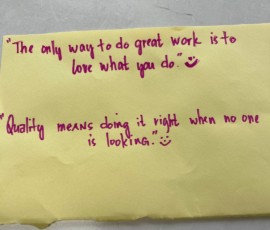 "The only way to do great work is to
love what you do." :)
"Quality means doing it right when no one
is looking." :)